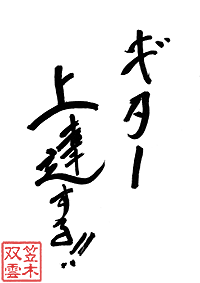 ギター
上達する!!
笠木
双雲